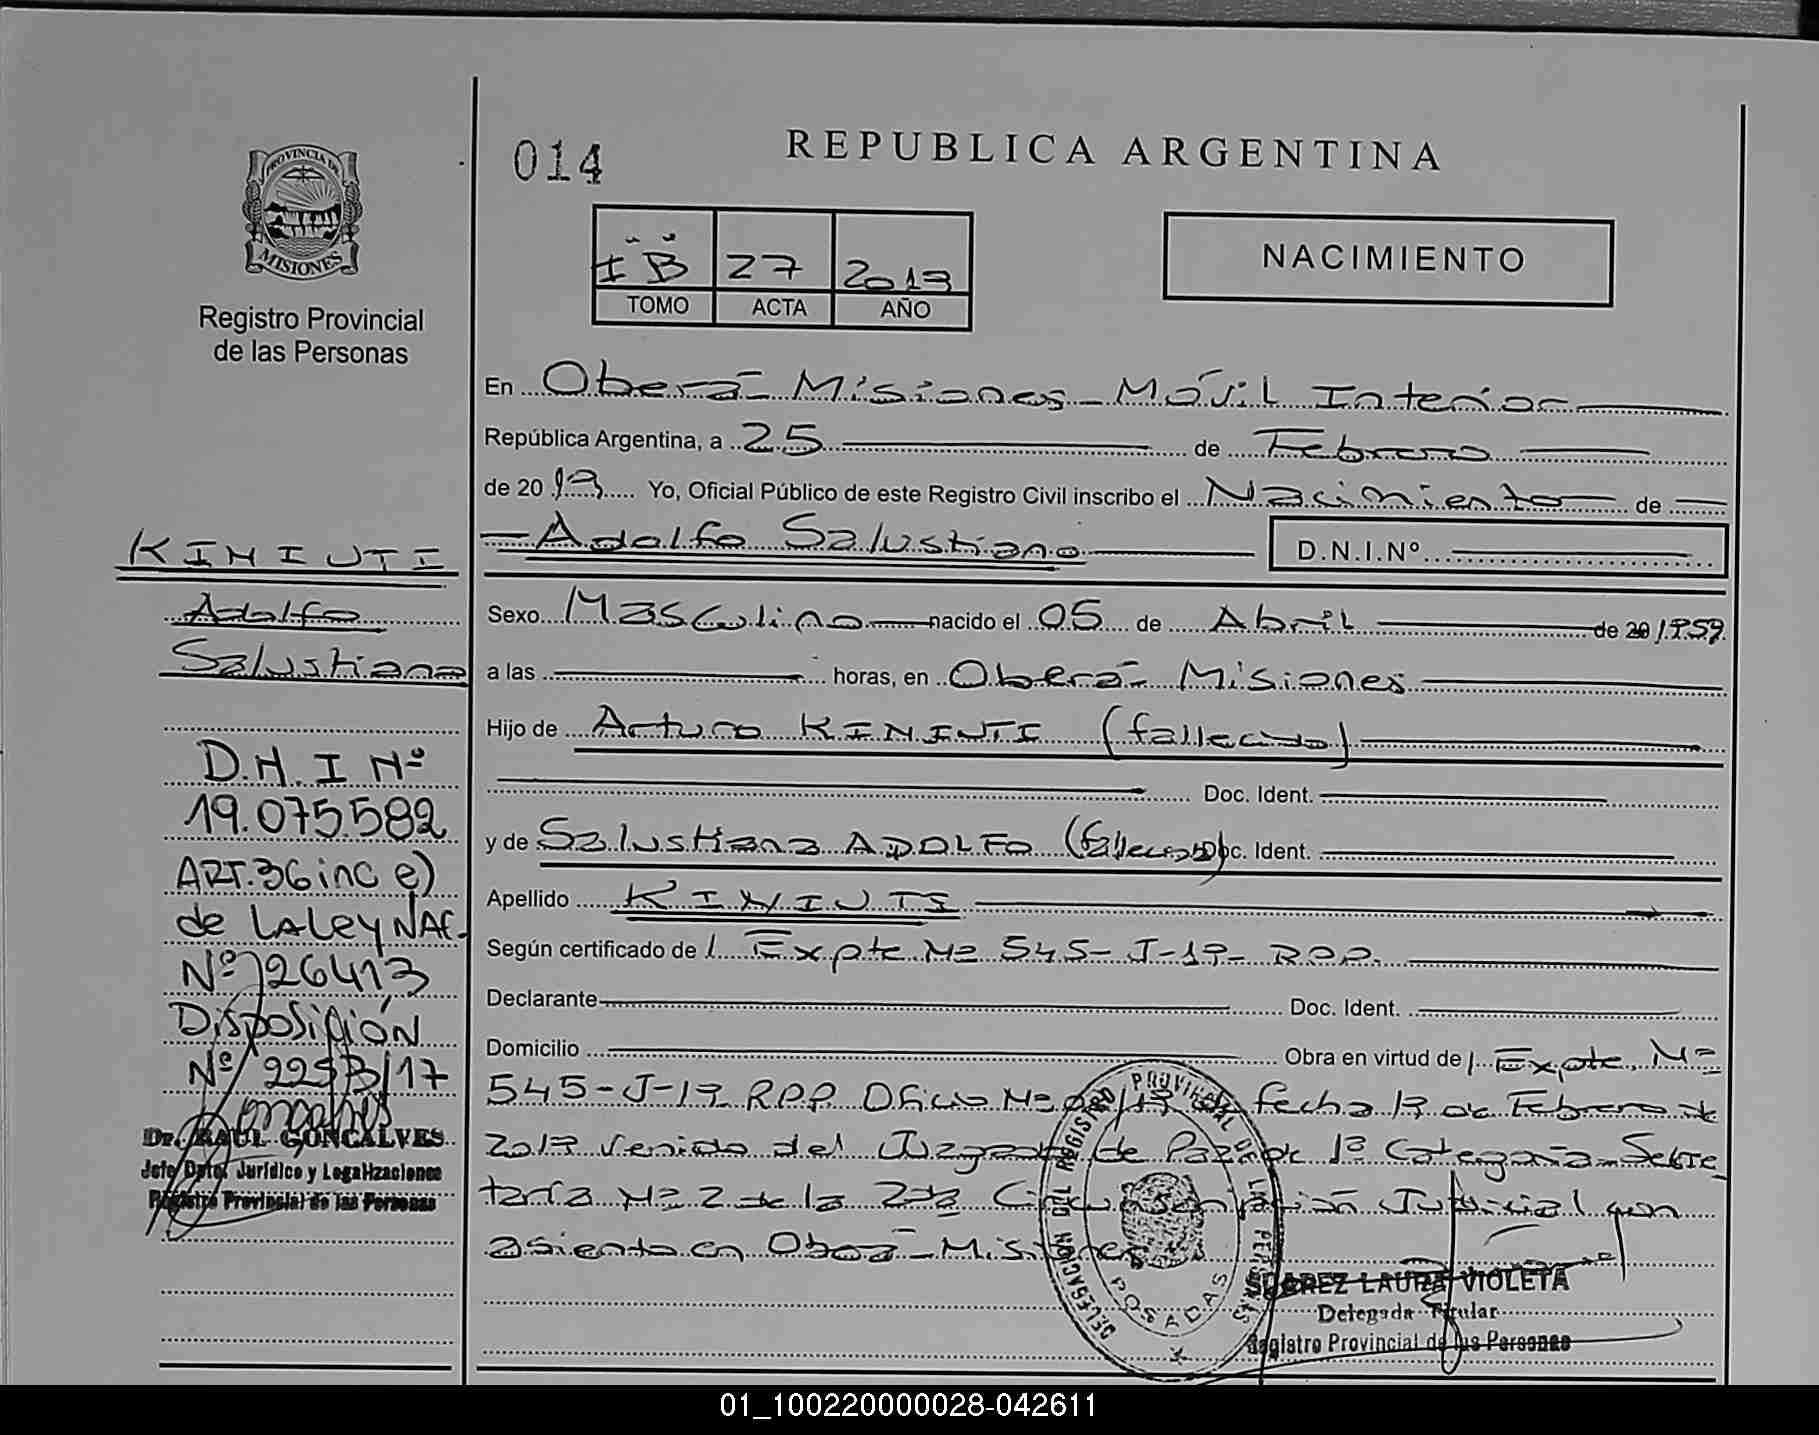 014
REPUBLICA ARGENTINA
PROVINCIA DE
MISIONES
Registro Provincial
de las Personas
27 2019
TOMO ACTA AÑO
NACIMIENTO
En Oberá - Misiones - Móvil Interior
República Argentina, a 25 de Febrero
de 2019 Yo, Oficial Público de este Registro Civil inscribo el Nacimiento de
Adolfo Salustiano D.N.I.Nº
Sexo Masculino nacido el 05 de Abril de 20 1959
a las horas, en Oberá - Misiones
Hijo de Arturo KINIUTI (fallecido)
Doc. Ident.
y de Salustiana ADOLFO (fallecida) Doc. Ident.
Apellido KINIUTI
Según certificado de Expte Nº 545-J-19- RPP.
Declarante Doc. Ident.
Domicilio Obra en virtud de Expte. Nº
545-J-19 RPP Oficio Nº fecha 19 de Febrero de
2019 venido del Juzgado de Paz de 1ª Categoría - Secre
taría Nº 2 de la 2da Circunscripción Judicial con
asiento en Oberá - Misiones
KINIUTI
Adolfo
Salustiano
D.N.I Nº
19.075.582
ART.36 inc e)
de LA Ley NAC.
Nº 26413
Disposición
Nº 17
Dr. RAUL GONCALVES
Jefe Dpto. Jurídico y Legalizaciones
Registro Provincial de las Personas
DELEGACION DEL REGISTRO PROVINCIAL DE LAS PERSONAS
POSADAS
SUAREZ LAURA VIOLETA
Delegada Titular
Registro Provincial de las Personas
01_100220000028-042611